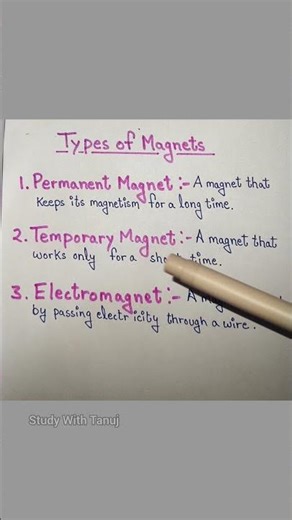 Types of Magnets
1. Permanent Magnet :- A magnet that
Keeps its magnetism for a long time.
2. Temporary Magnet :- A magnet that
works only for a short time.
3. Electromagnet :- A
by passing electricity through a wire.
Study With Tanuj